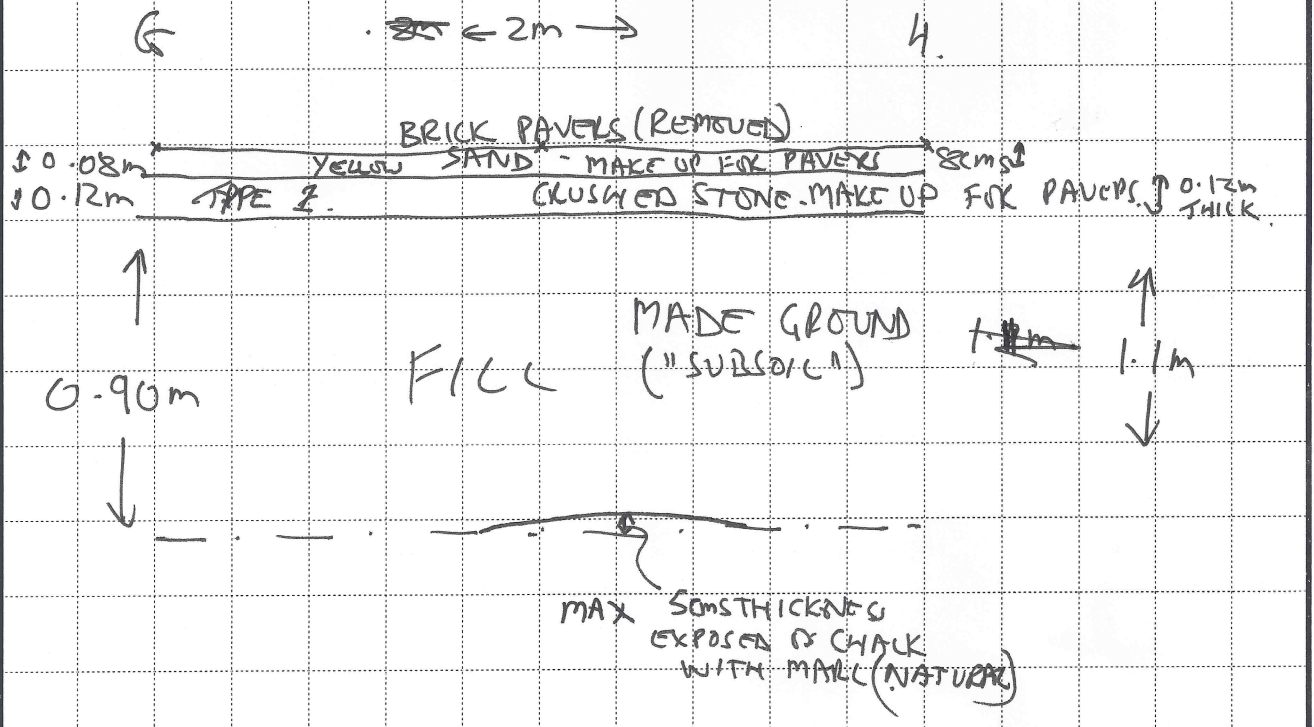 ← 2m →
4.
BRICK PAVERS (REMOVED)
↕ 0.08m YELLOW SAND - MAKE UP FOR PAVERS 8cms↕
↕ 0.12m TYPE 1. CRUSHED STONE. MAKE UP FOR PAVERS. ↕ 0.12m
THICK.
MADE GROUND
("SUBSOIL")
FILL
1.1m
0.90m
MAX 5cms THICKNESS
EXPOSED OF CHALK
WITH MARL (NATURAL)